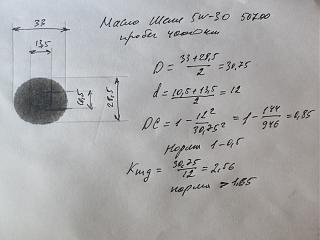 33
13,5
10,5
28,5
Масло Шелл 5W-30 507.00
пробег
D = 33+28,5 / 2 = 30,75
d = 10,5+13,5 / 2 = 12
DC = 1 - 12² / 30,75² = 1 - 144 / 946 = 0,85
Норма 1-0,5
Kтд = 30,75 / 12 = 2,56
норма > 1,65